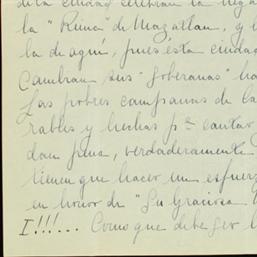 de la ciudad
la "Reina" de Mazatlan, y
la de aquí, pues ésta ciudad
Cambian sus "Soberanas"
Las pobres campanas de
rables y hechas pª cantar
dan pena, verdaderamente
tienen que hacer un esfuerz
en honor de "Su Graciosa
I!!!... Como que debe ser l